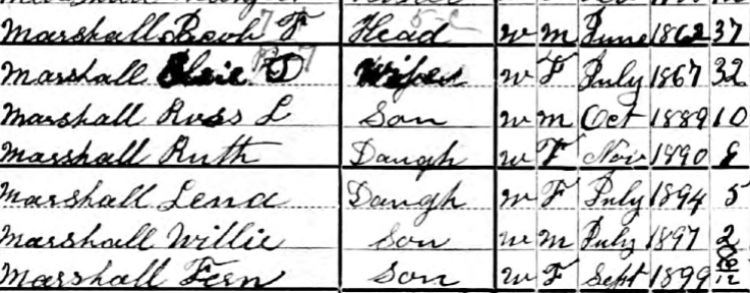 Marshall F Head w m June 1862 37
Marshall Elsie D Wife w F July 1867 32
Marshall Ross L Son w m Oct 1889 10
Marshall Ruth Daugh w F Nov 1890
Marshall Lena Daugh w F July 1894 5
Marshall Willie Son w m July 1897 2
Marshall Fern Son w F Sept 1899 /12